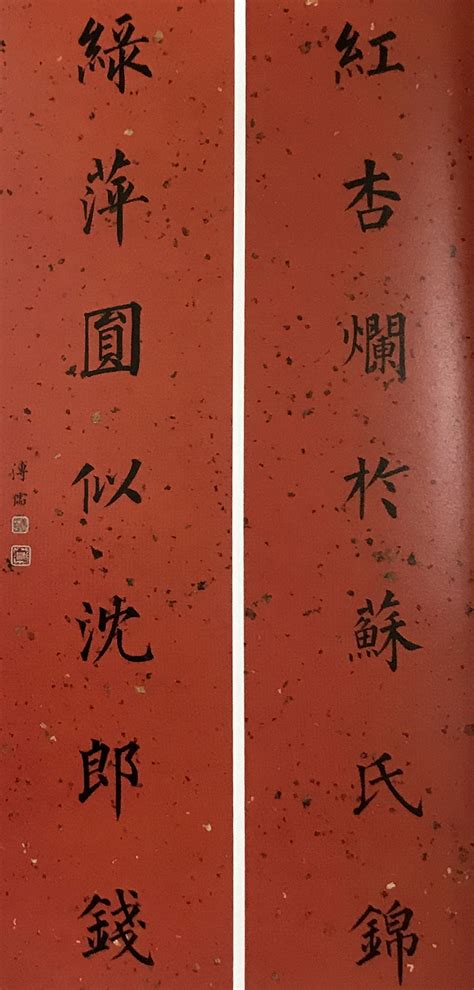 紅杏爛於蘇氏錦
綠萍圓似沈郎錢
溥儒